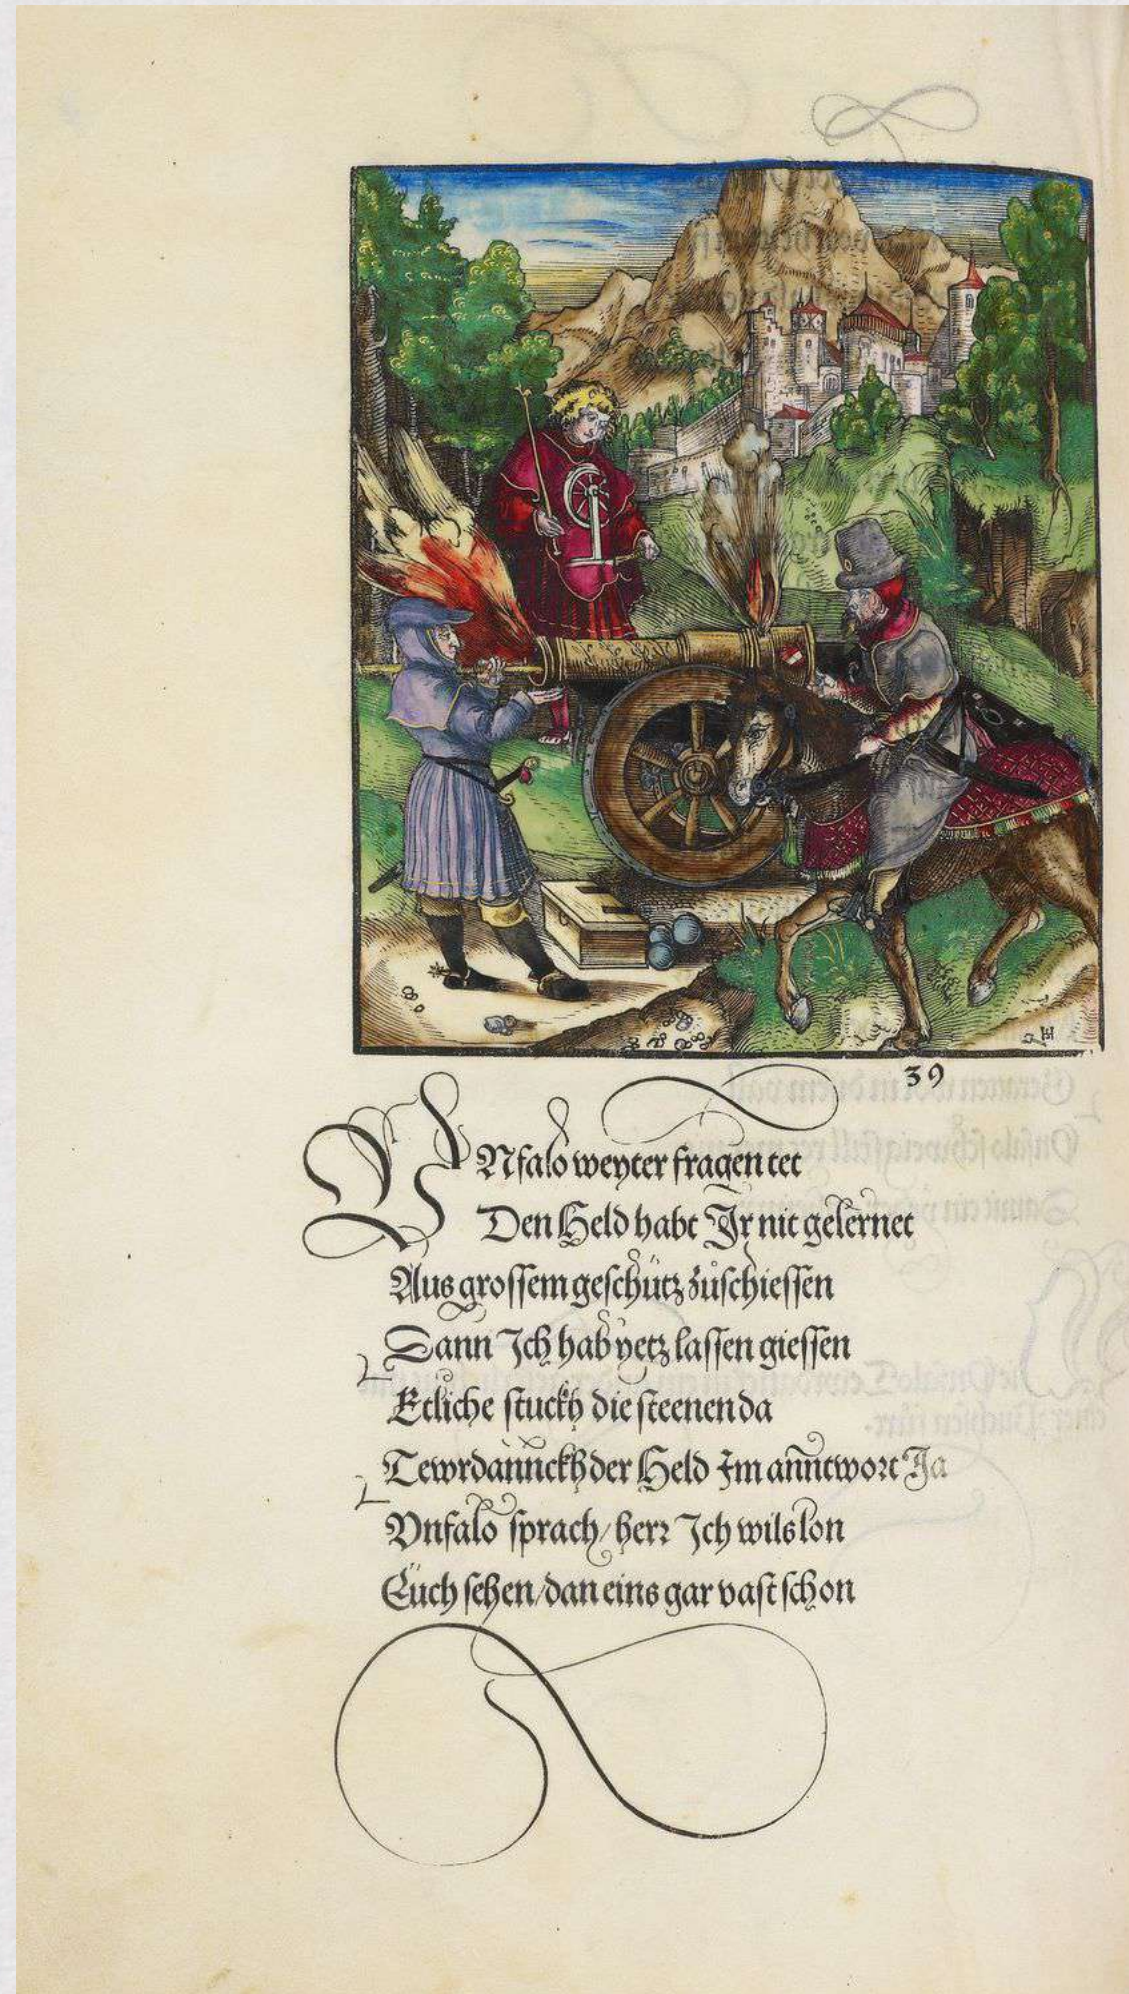 39
VNfalo weyter fragen tet
Den Held habt Ir nit gelernet
Aus grossem geschütz zůschiessen
Dann Ich hab yetz lassen giessen
Etliche stuckh die steenen da
Tewrdannckh der Held Im anntwort Ja
Vnfalo sprach / herr Ich wils lon
Euch sehen / dan eins gar vast schon